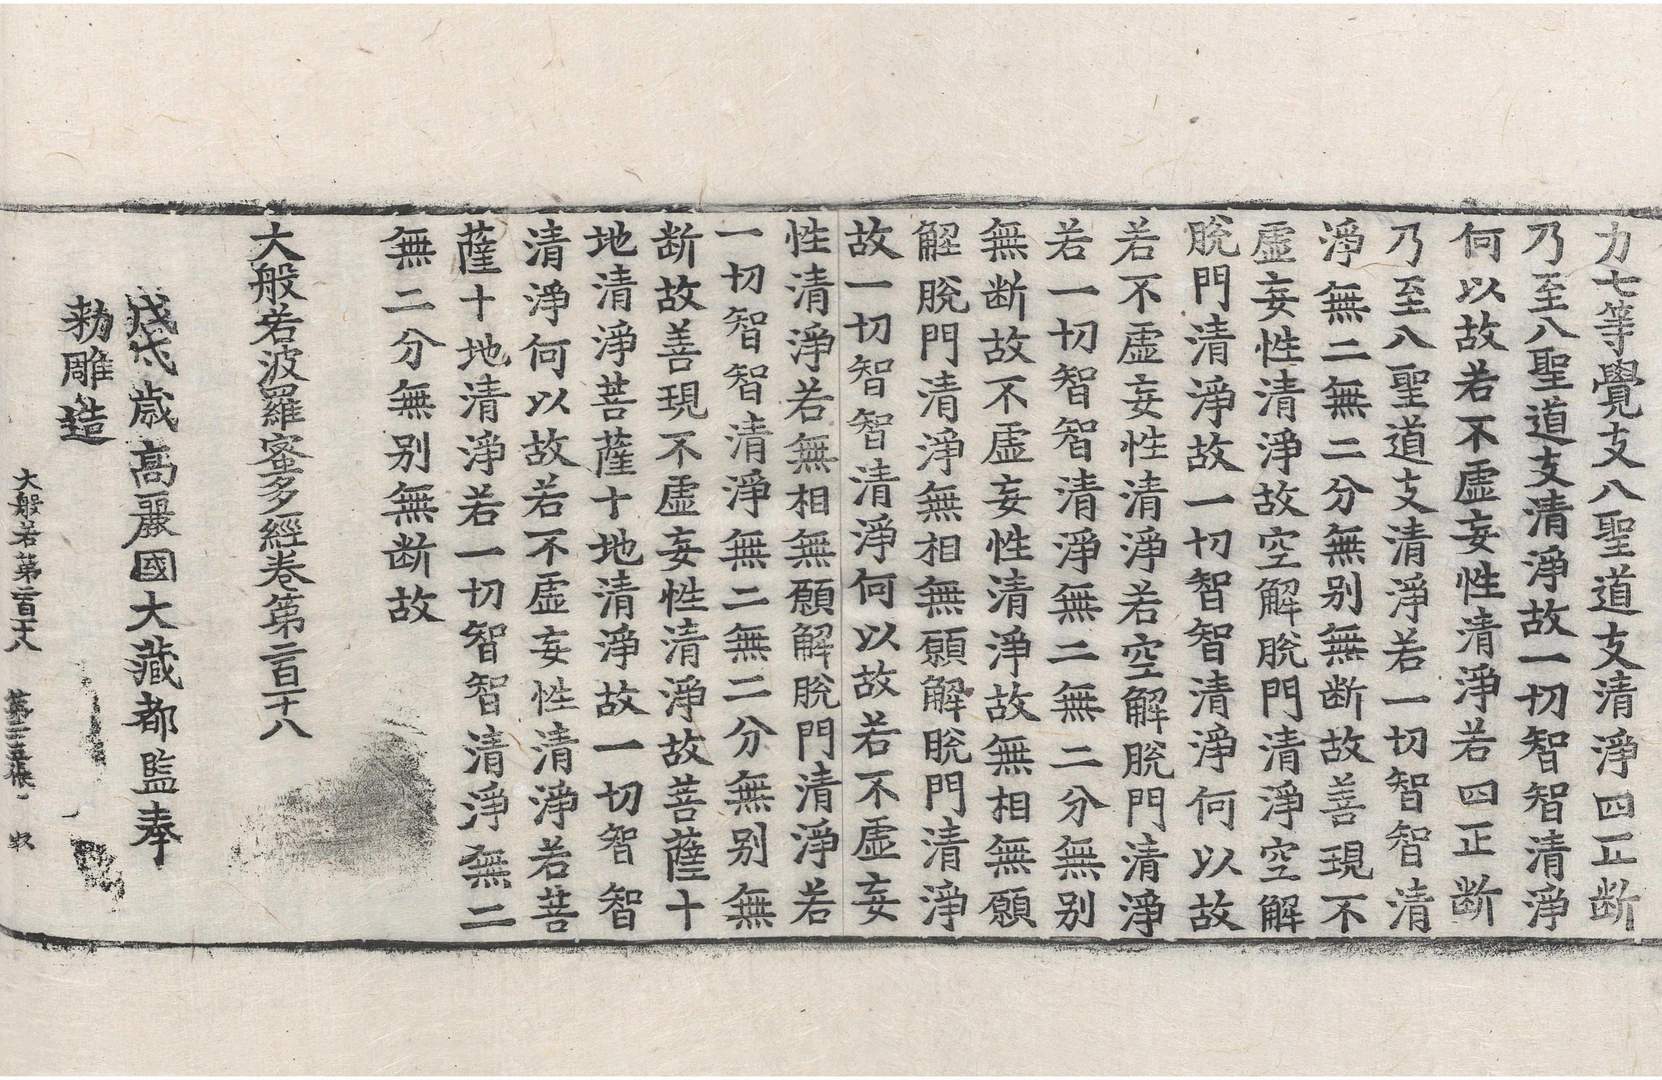 力七等覺支八聖道支清淨四正断
乃至八聖道支清淨故一切智智清淨
何以故若不虛妄性清淨若四正断
乃至八聖道支清淨若一切智智清
淨無二無二分無别無断故善現不
虛妄性清淨故空解脫門清淨空解
脫門清淨故一切智智清淨何以故
若不虛妄性清淨若空解脫門清淨
若一切智智清淨無二無二分無别
無断故不虛妄性清淨故無相無願
解脫門清淨無相無願解脫門清淨
故一切智智清淨何以故若不虛妄
性清淨若無相無願解脫門清淨若
一切智智清淨無二無二分無别無
断故善現不虛妄性清淨故菩薩十
地清淨菩薩十地清淨故一切智智
清淨何以故若不虛妄性清淨若菩
薩十地清淨若一切智智清淨無二
無二分無别無断故
大般若波羅蜜多經卷第二百十八
戊戌歲高麗國大藏都監奉
勅雕造
大般若第二百十八